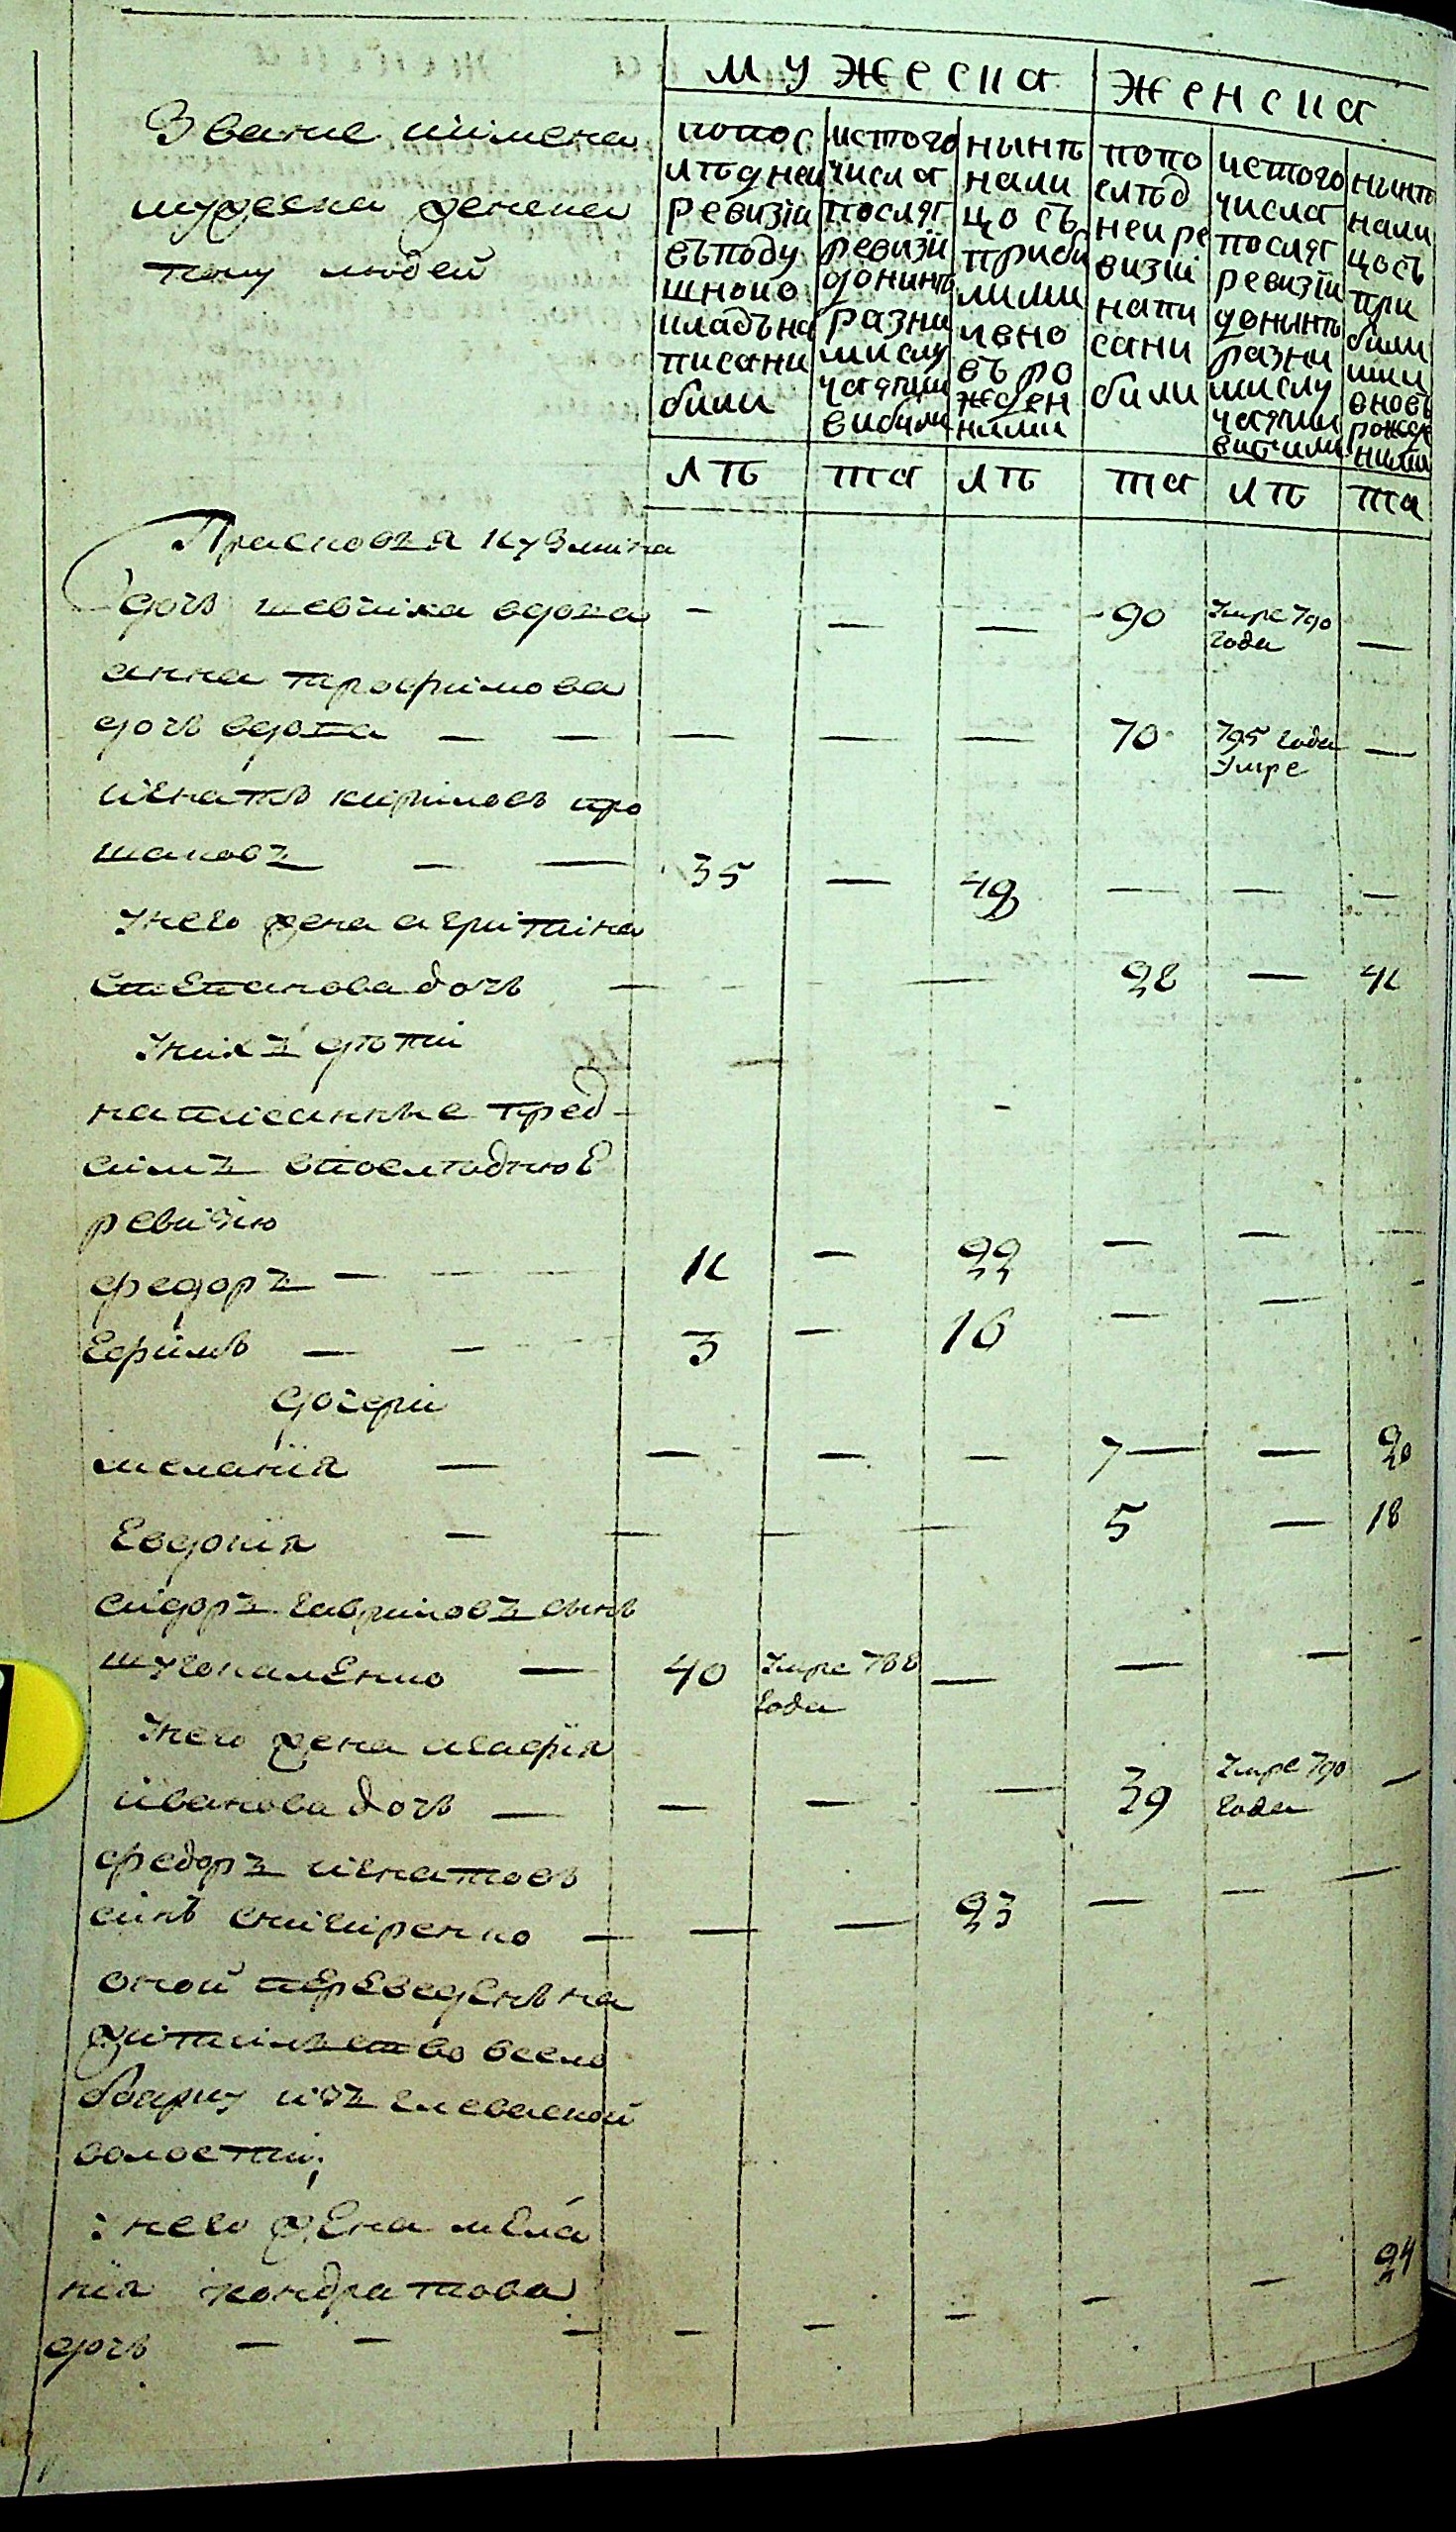 мужеска женска
Звание иимена
мужеска ѱженска
полу людей
попос
лѣднеи
ревизіи
въподу
шною
кладъна
писани
били
истого
числа
после
ревизіи
донинѣ
разни
ми слу
чаями
вибили
нынѣ
нали
цо съ
приби
лими
ивно
въ ро
жден
ними
попо
слѣд
неи ре
визіи
напи
сани
били
истого
числа
после
ревизіи
донынѣ
разни
ми слу
чаями
вибили
нынѣ
нали
цосъ
при
били
ми и
вновъ
рожде
ними
лѣ та лѣ та лѣ та
Прасковъя Кузмина
дочъ шевчика вдова — — — 90 Умре 790 года —
анна трофимова
дочъ вдова — — — — — 70 795 года Умре —
игнатъ кириловъ про
шаковъ — — 35 — 49 — — —
Унего жена агрипина
степанова дочъ — — — 28 — 41
Унихъ дѣти
написанные пред
симъ впослѣднюю
ревизію
федоръ — — 11 — 22 — — —
Ефимъ — — 3 — 16 — —
дочери
меланія — — — — 7 — — 20
Евдокія — — — — 5 — 18
сидоръ гавриловъ сынъ
— 40 Умре 788 года — — —
Унего жена агафія
иванова дочъ — — — — 39 Умре 790 года —
федоръ игнатовъ
синъ — — — 23 — — —
оной переведенъ на
жителство всело
изъ
волости;
Унего жена мела
нія кондратова
дочъ — — — — — — — — 24